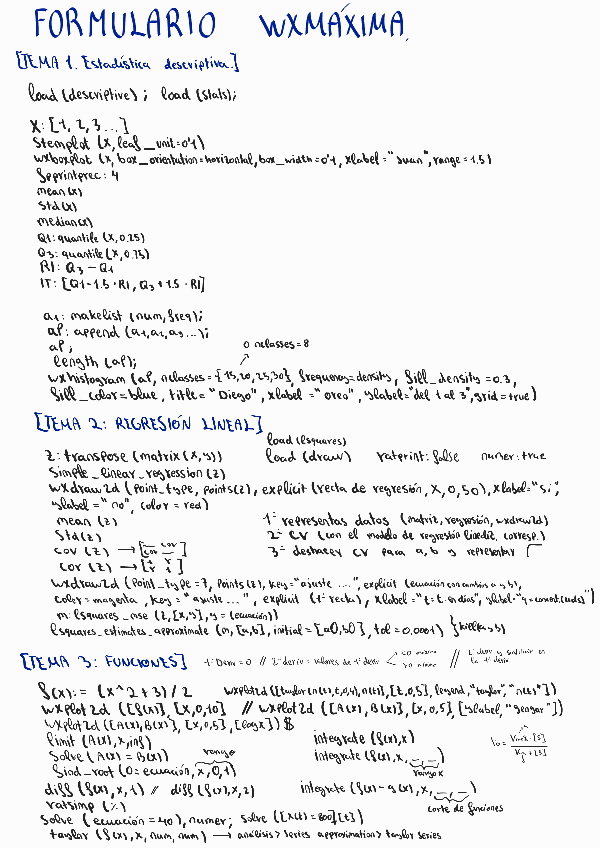 FORMULARIO WXMÁXIMA.
[TEMA 1. Estadística descriptiva.]
load (descriptive) ; load (stats);
X: [1, 2, 3 ...]
Stemplot (X, leaf_unit=0'1)
wxboxplot (X, box_orientation=horizontal, box_width=0'1, xlabel="Juan", range=1.5)
fpprintprec: 4
mean (x)
Std (x)
median (x)
Q1: quantile (X, 0.25)
Q3: quantile (X, 0.75)
RI: Q3 - Q1
IT: [Q1-1.5·RI, Q3+1.5·RI]
a1: makelist (num, freq);
aP: append (a1, a2, a3 ...);
aP;
length (aP);
o nclasses=8
wxhistogram (aP, nclasses={15,20,25,30}, frequency=density, fill_density=0.3,
fill_color=blue, title="Diego", xlabel="oreo", ylabel="del 1 al 3", grid=true)
[TEMA 2: REGRESIÓN LINEAL]
load (lsquares)
z: transpose (matrix (x,y)) load (draw) ratprint: false numer: true
Simple_linear_regression (z)
wxdraw2d (point_type, points(z), explicit (recta de regresión, X, 0, 50), xlabel="Si",
ylabel="no", color=red)
mean (z) 1º representas datos (matriz, regresión, wxdraw2d)
Std (z) 2º CV (con el modelo de regresión linealiz. corresp.)
cov (z) → 3º deshacer CV para a, b y representar
cor (z) →
wxdraw2d (point_type=7, points(z), key="ajuste ....", explicit (ecuación con cambio a y b),
color=magenta, key="ajuste ...", explicit (1ª recta), xlabel="t= t. en días",
m: lsquares_mse (z, [x,y], y=(ecuación))
lsquares_estimates_approximate (m, [a,b], initial=[a0,b0], tol=0.0001)
[TEMA 3: FUNCIONES] 1ª Deriv=0 // 2ª deriv = valores de 1ª deriv <0 máximo
>0 mínimo
f(x):= (x^2+3)/2 wxplot2d ([taylor (n(t),t,0,4), n(t)], [t,0,5], [legend, "taylor", "n(t)"])
wxplot2d ([f(x)], [x,0,10] // wxplot2d ([A(x), B(x)], [x,0,5], [ylabel, "gengar"])
wxplot2d ([A(x), B(x)], [x,0,5], [logx]) $
limit (A(x), x, inf) integrate (f(x), x)
Solve (A(x) = B(x)) rango integrate (f(x), x, _, _)
find_root (0=ecuación, x, 0, 1) rango x
diff (f(x), x, 1) // diff (f(x), x, 2) integrate (f(x) - g(x), x, _, _)
ratsimp (%) corte de funciones
Solve (ecuación=40), numer; solve ([x(t)=800], [t])
taylor (f(x), x, num, num) → análisis > series approximation > taylor series